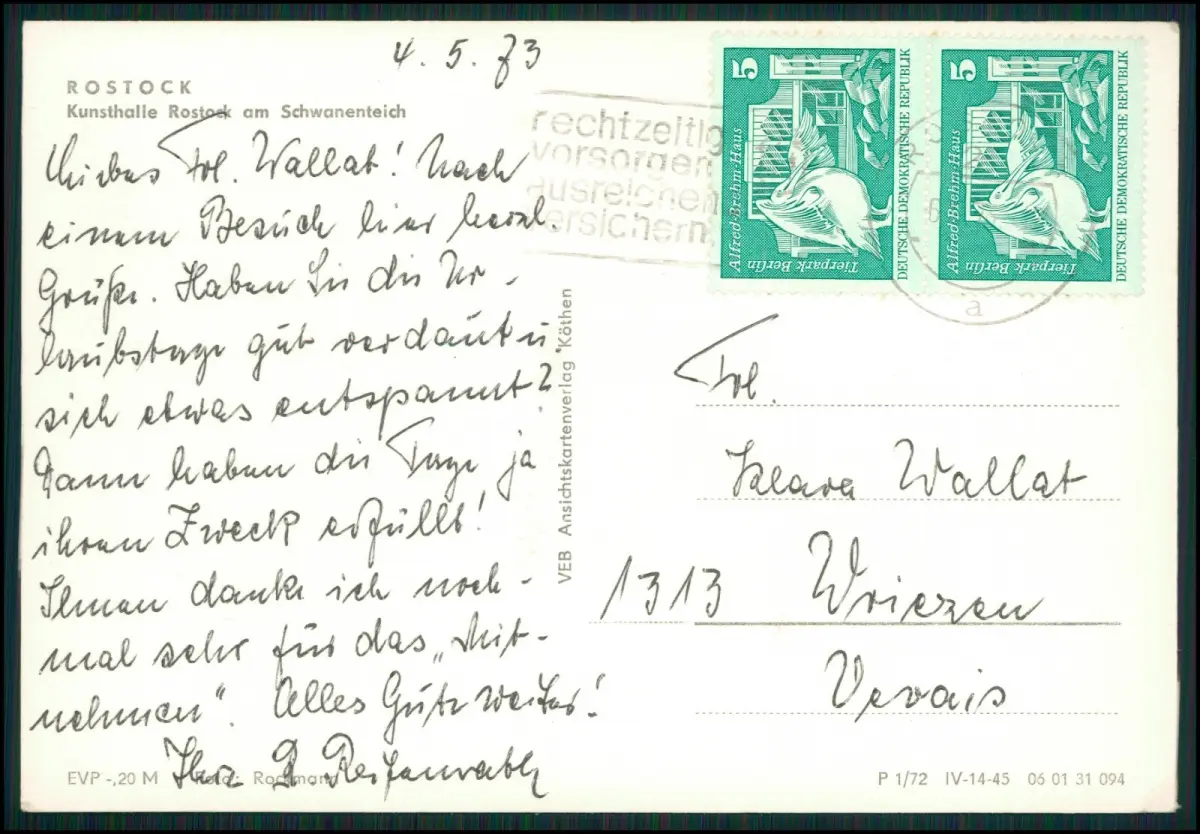 4. 5. 73
ROSTOCK
Kunsthalle Rostock am Schwanenteich
Liebes Frl. Wallat! Nach
einem Besuch hier herzl.
Grüße. Haben Sie die Ur-
laubstage gut verdaut u.
sich etwas entspannt?
Dann haben die Tage ja
ihren Zweck erfüllt!
Ihnen danke ich noch-
mal sehr für das „Mit-
nehmen". Alles Gute weiter!
Ihre
EVP -,20 M Foto:
VEB Ansichtskartenverlag Köthen
rechtzeitig
vorsorgen
ausreichen
versichern
5
Alfred-Brehm-Haus
Tierpark Berlin
DEUTSCHE DEMOKRATISCHE REPUBLIK
5
Alfred-Brehm-Haus
Tierpark Berlin
DEUTSCHE DEMOKRATISCHE REPUBLIK
a
Frl.
Klara Wallat
1313 Wriezen
Vevais
P 1/72 IV-14-45 06 01 31 094